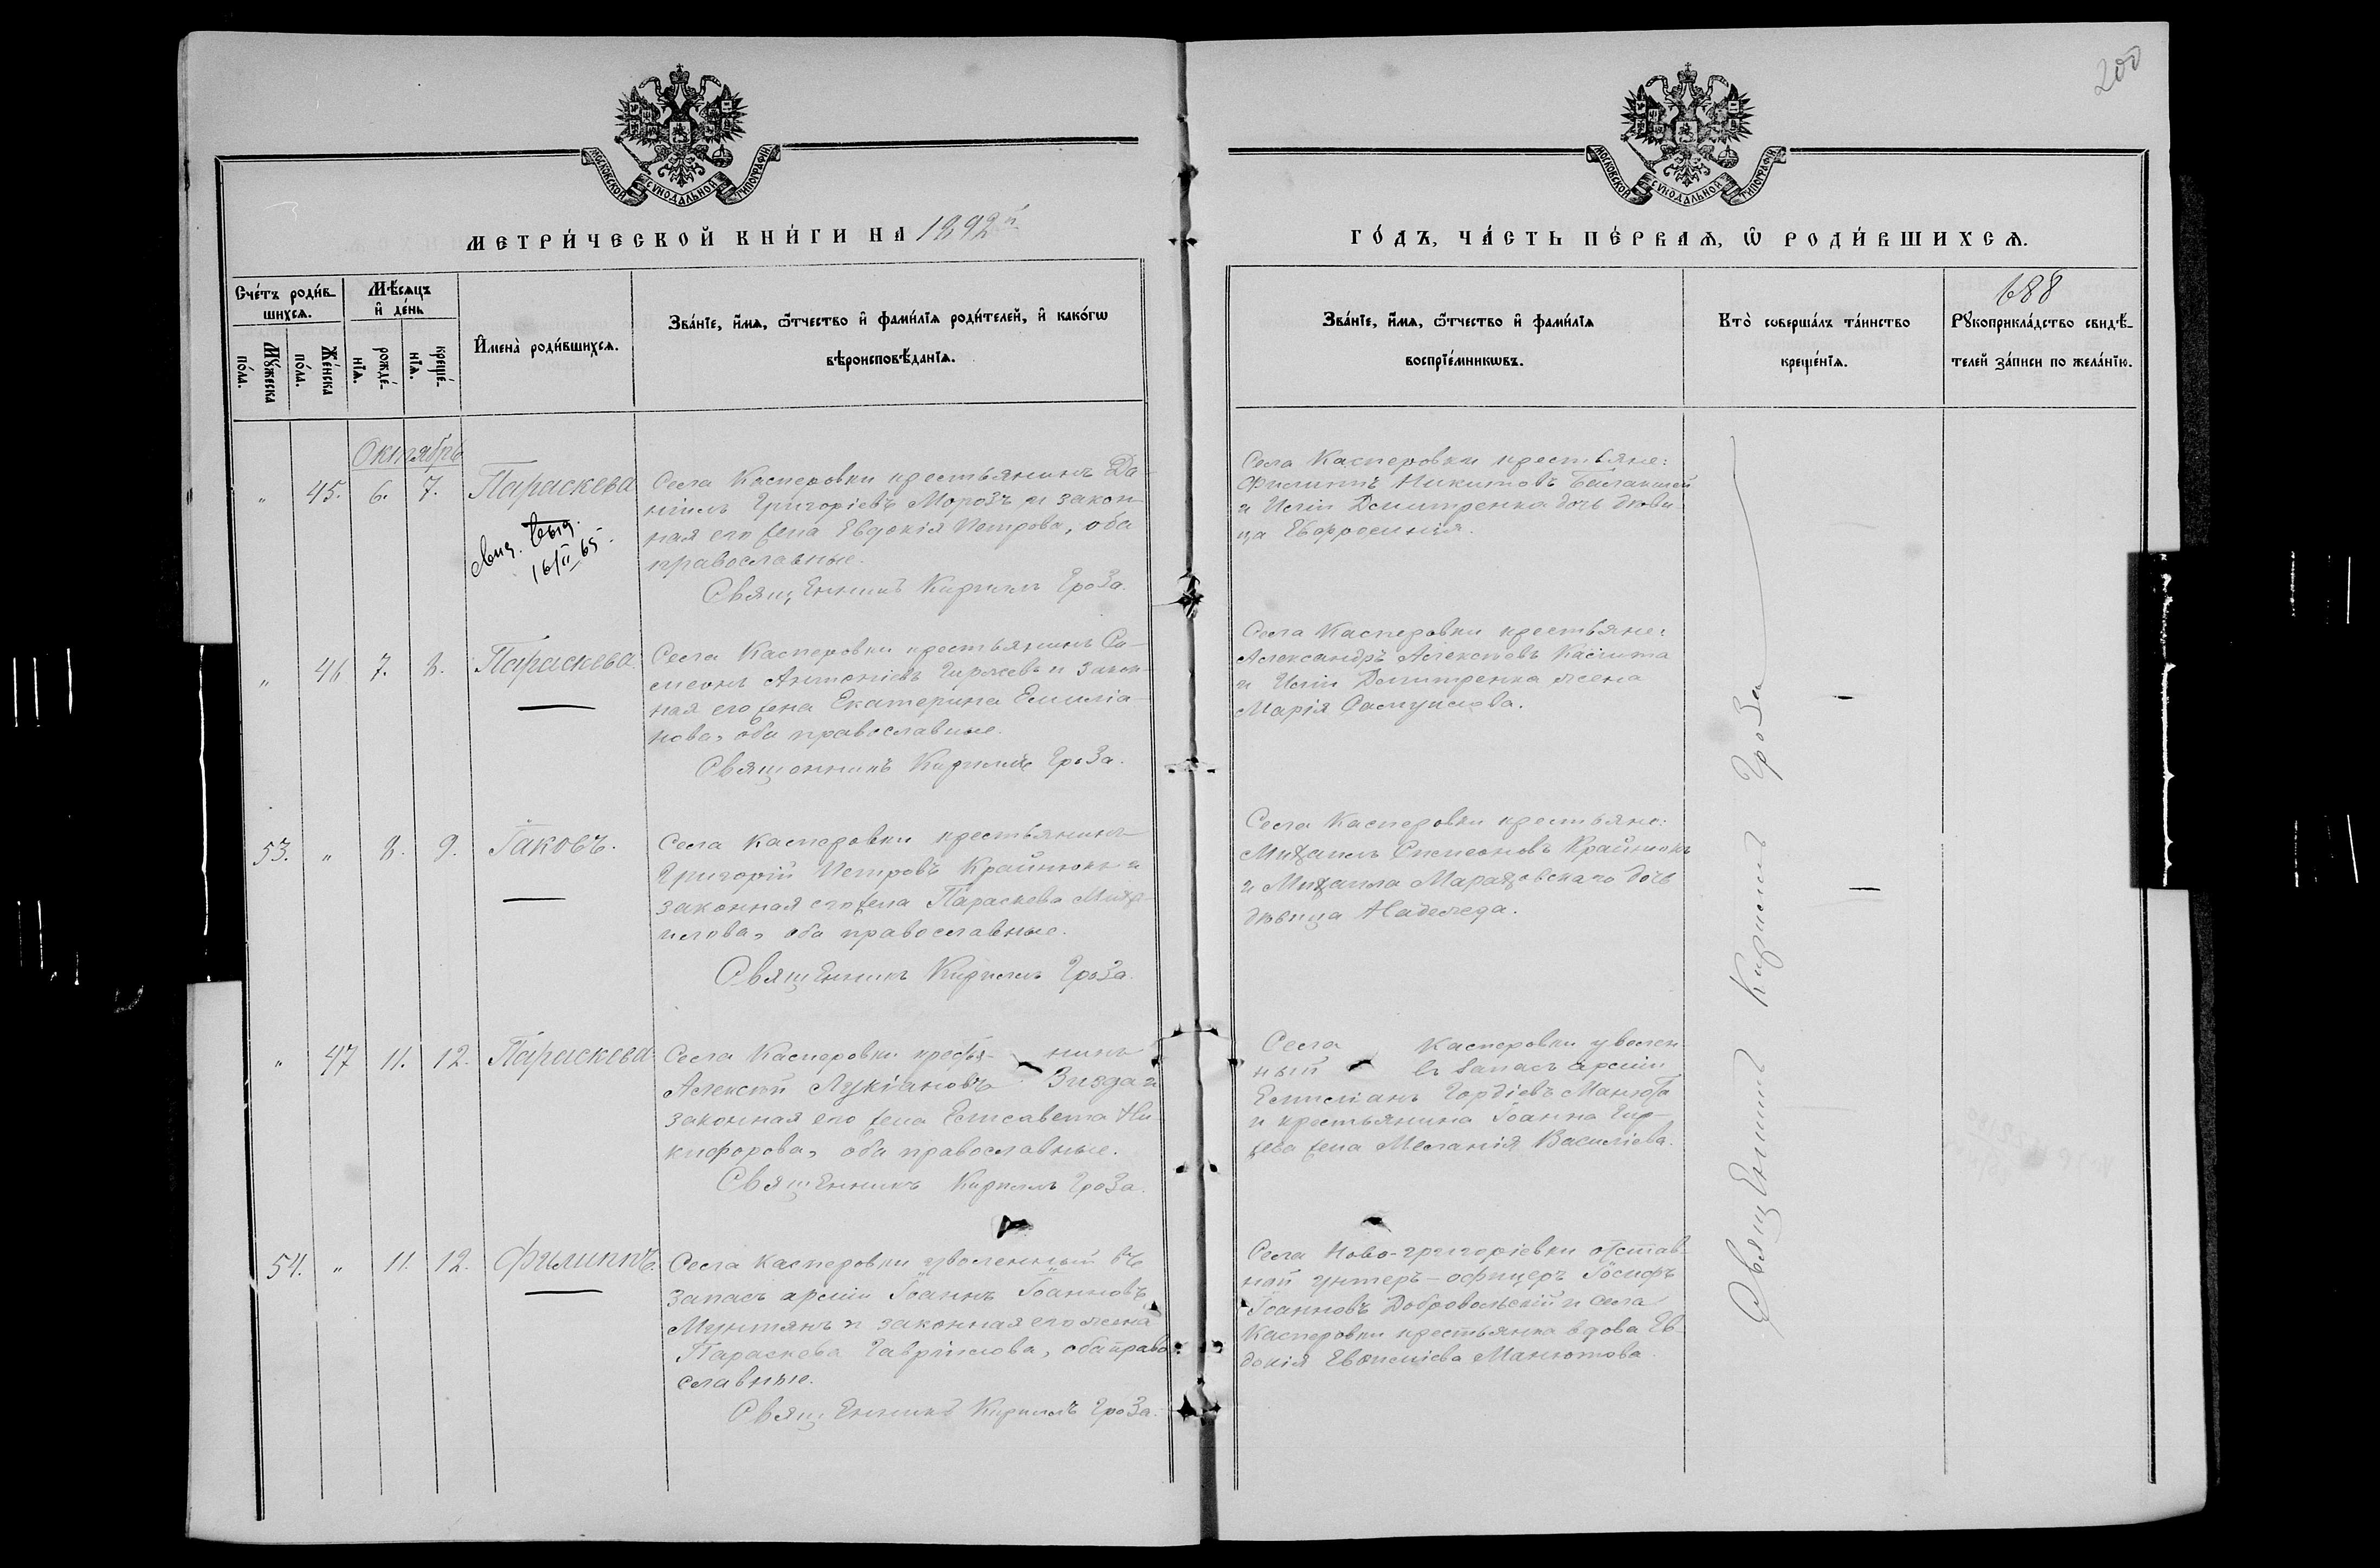 200
МОСКОВСКОЙ СУНОДАЛЬНОЙ ТИПОГРАФІИ
МОСКОВСКОЙ СУНОДАЛЬНОЙ ТИПОГРАФІИ
МЕТРИ́ЧЕСКОЙ КНИ́ГИ НА 1892й
ГО́ДЪ, ЧА́СТЬ ПЕ́РВАѦ, Ѡ҆ РОДИ́ВШИХСѦ.
Сче́тъ роди́вшихсѧ.
Мꙋ́жеска по́ла.
Же́нска по́ла.
Мѣ́сѧцъ и҆ де́нь
рожде́нїѧ.
креще́нїѧ.
И҆мена̀ роди́вшихсѧ.
Зва́нїе, и҆́мѧ, ѻ҆́тчество и҆ фами́лїѧ роди́телей, и҆ како́гѡ
вѣроисповѣ́данїѧ.
Зва́нїе, и҆́мѧ, ѻ҆́тчество и҆ фами́лїѧ
воспрїе́мникѡвъ.
Кто̀ соверша́лъ та́инство
креще́нїѧ.
688
Рꙋкоприкла́дство свидѣ́-
телей за́писи по жела́нїю.
Октябрь
" 45. 6. 7. Параскева
свид. выд.
16/II 65.
Села Касперовки крестьянинъ Да-
ніилъ Григоріевъ Морозъ и закон-
ная его жена Евдокія Петрова, оба
православные.
Священникъ Кириллъ Гроза.
Села Касперовки крестьяне:
Филиппъ Никитовъ
и Иліи Домитренка дочь дѣви-
ца Евфросинія.
" 46 7. 8. Параскева.
Села Касперовки крестьянинъ Си-
меонъ Антоніевъ и закон-
ная его жена Екатерина Емиліа-
нова, оба православные.
Священникъ Кириллъ Гроза.
Села Касперовки крестьяне:
Александръ Алексѣевъ
и Иліи Домитренка жена
Марія Самуилова.
53. " 8. 9. Іаковъ.
Села Касперовки крестьянинъ
Григорій Петровъ Крайнюкъ и
законная его жена Параскева Миха-
илова, оба православные.
Священникъ Кириллъ Гроза.
Села Касперовки крестьяне:
Михаилъ Симеоновъ Крайнюкъ
и Михаила Мараховскаго дочь
дѣвица Надежда.
" 47 11. 12. Параскева
Села Касперовки крестья- нинъ
Алексѣй Лукіановъ Зизда и
законная его жена Елисавета Ни-
кифорова, оба православные.
Священникъ Кириллъ Гроза.
Села Касперовки уволен-
ный въ запасъ арміи
Емиліанъ Гордіевъ Манюта
и крестьянина Іоанна Гир-
жева жена Меланія Василіева.
54. " 11. 12. Филиппъ.
Села Касперовки уволенный въ
запасъ арміи Іоаннъ Іоанновъ
Мунтянъ и законная его жена
Параскева Гавриилова, оба право-
славные.
Священникъ Кириллъ Гроза.
Села Ново-григоріевки отстав-
ной унтеръ-офицеръ Іосифъ
Іоанновъ Добровольскій и села
Касперовки крестьянка вдова Ев-
докія Евѳиміева Манютова.
Священникъ Кириллъ Гроза